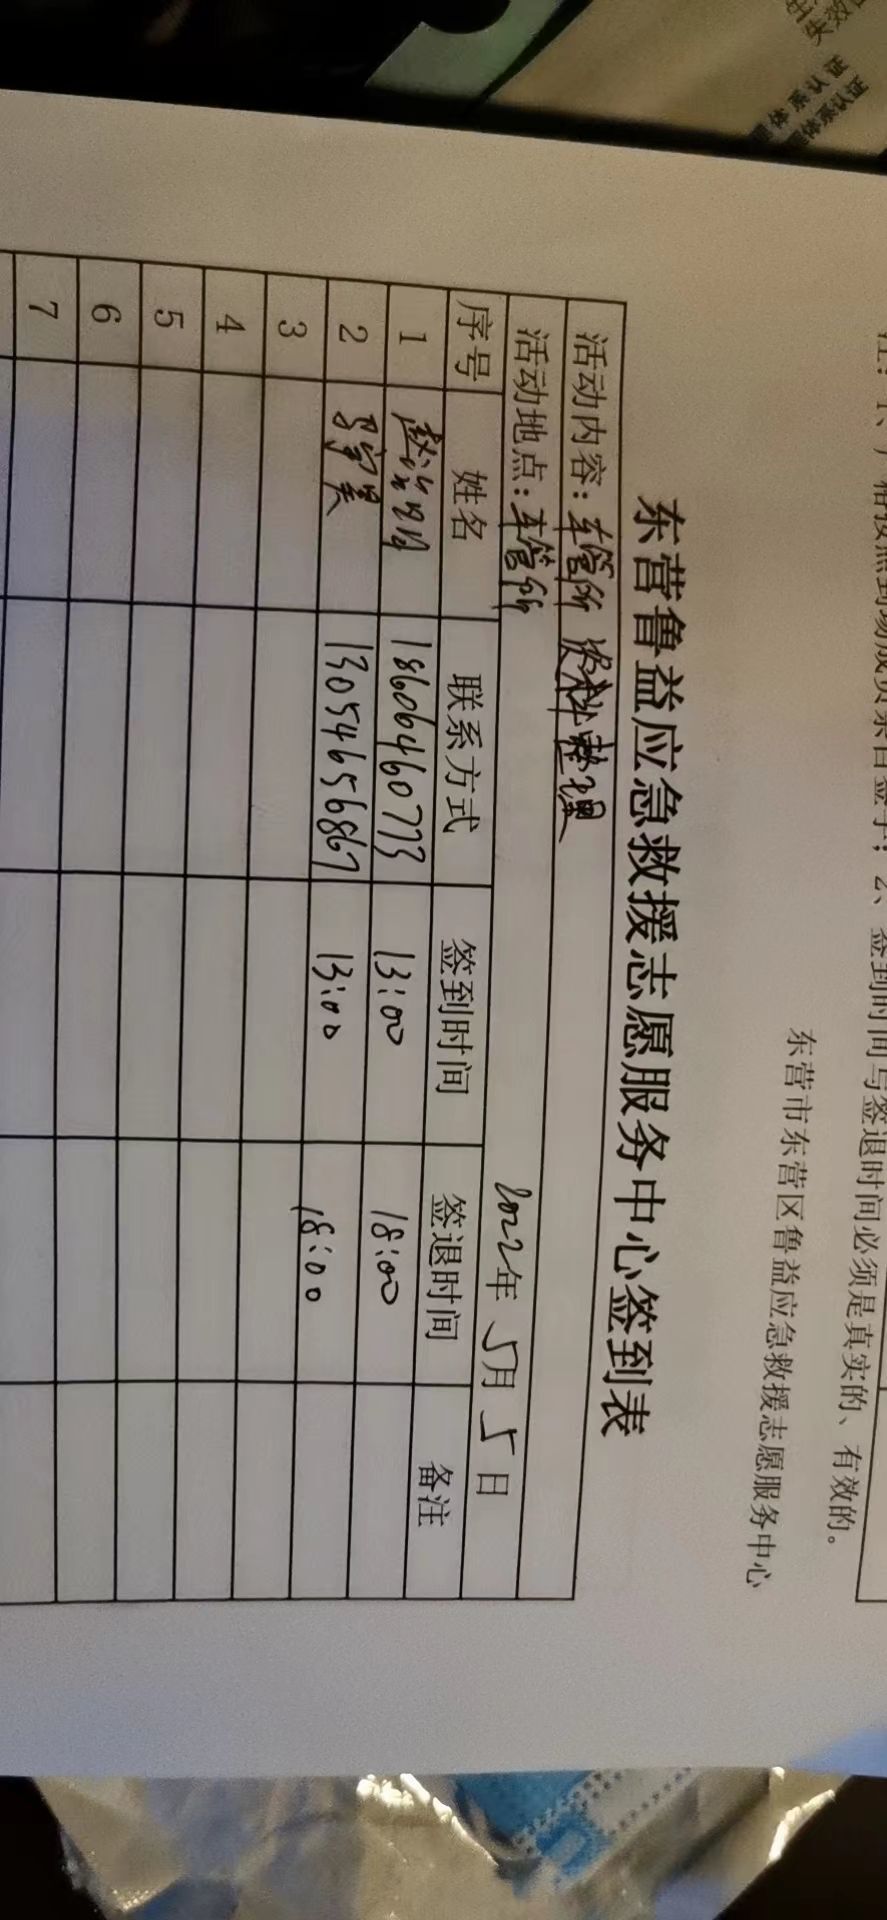 失效
体系认证
体系认证
签到时间与签退时间必须是真实的、有效的。
东营市东营区鲁益应急救援志愿服务中心
东营鲁益应急救援志愿服务中心签到表
活动内容：车管所 资料整理
活动地点：车管所 2022年 5月 5日
序号 姓名 联系方式 签到时间 签退时间 备注
1 18606460773 13:00 18:00
2 13054656867 13:00 18:00
3
4
5
6
7